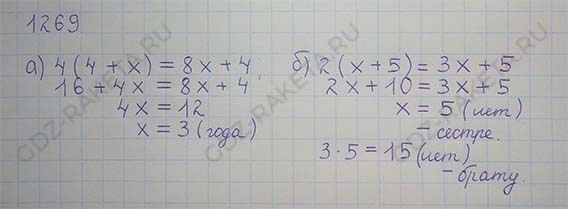 1269
а) 4(4+x) = 8x+4,
16+4x = 8x+4
4x = 12
x = 3 (года)
б) 2(x+5) = 3x+5
2x+10 = 3x+5
x = 5 (лет)
- сестре.
3·5=15 (лет)
- брату.
GDZ-RAKETA.RU